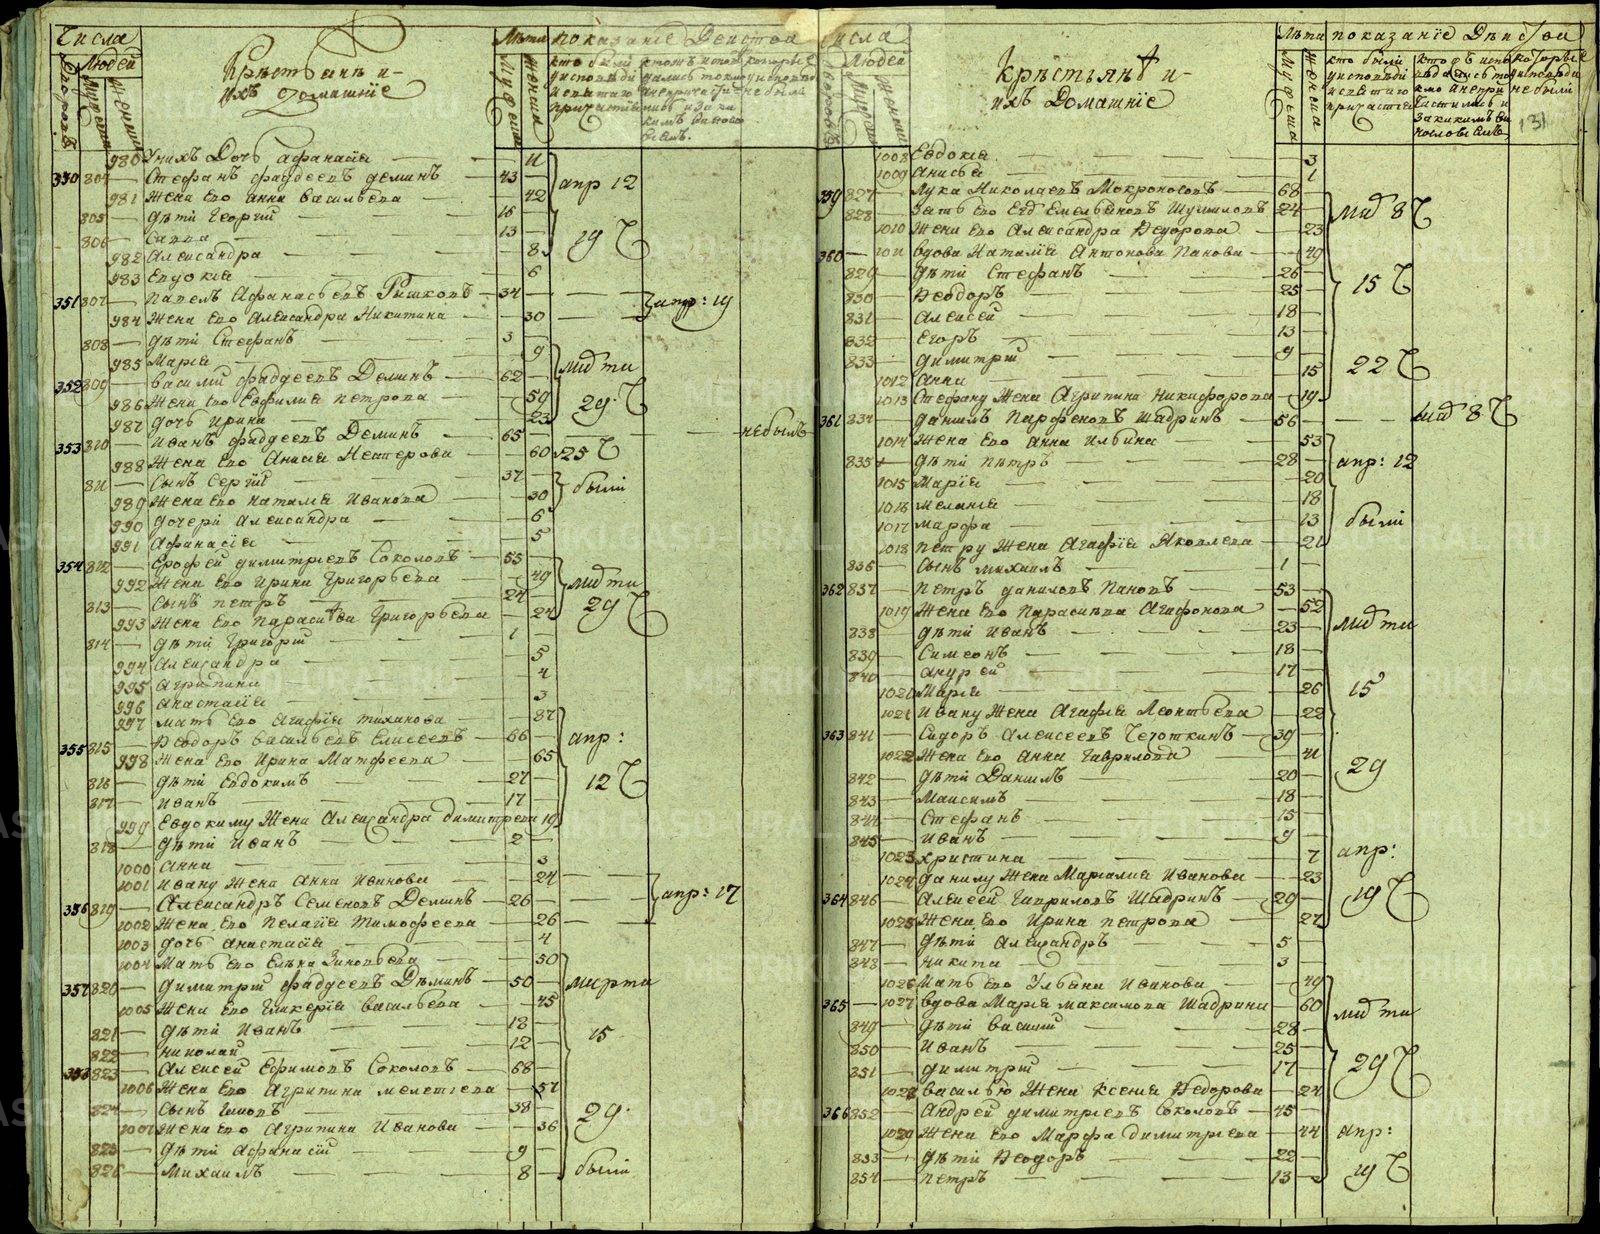 Числа
Дворовъ
Людей
Мужеска
Женска
Крестьяне и
ихъ домашнїе
Лѣта
Мужеска
Женска
показанїе Действа
980 У нихъ Дочь Афанасїя — 11
350 804 — Стефанъ фадѣевъ деминъ — 43
981 Жена его анна васильева — 42
апр 12
805 — дѣти Георгий — 15
806 — Савва — 13
19 Ч
982 Александра — 8
983 Евдокия — 6
351 807 — Павелъ Афанасьевъ Ришковъ — 34
апр: 19
984 Жена его Александра Никитина — 30
808 — дѣти Стефанъ — 3
985 Марїя — 9
352 809 — василий фадѣевъ Деминъ — 62
марта
986 Жена его Евфимия петрова — 59
29 Ч
987 дочь ирина — 23
353 810 — иванъ фадѣевъ Деминъ — 65 — небылъ
988 Жена его Анисия Нестерова — 60
25 Ч
811 — Сынъ Сергий — 37
989 Жена его наталия Иванова — 30
были
990 дочери александра — 6
991 Афанасїя — 5
354 812 — Ерофей димитриевъ Соколовъ — 55
992 Жена его ирина григорьева — 49
марта
813 — Сынъ петръ — 24
29 Ч
993 Жена его Парасковья григорьева — 24
814 — дѣти григорий — 1
994 Александра — 5
995 Агрипина — 4
996 Анастасїя — 3
997 мать его Агафїя тиханова — 87
355 815 — Ѳеодоръ васильевъ Елисеевъ — 66
апр:
998 Жена его Ирина Матфеева — 65
816 — дѣти Евдокимъ — 27
12 Ч
817 — иванъ — 17
999 Евдокиму Жена Александра димитрева 19
818 — дѣти Иванъ — 2
1000 анна — 3
1001 ивану Жена анна Иванова — 24
апр: 17
356 819 — Александръ Семеновъ Деминъ — 26
1002 Жена его Пелагїя тимофеева — 26
1003 дочь анастасїя — 4
1004 Мать его Елена Зиновьева — 50
357 820 — димитрий фадѣевъ Дѣминъ — 50
марта
1005 Жена его Гликерїя васильева — 45
821 — дѣти Иванъ — 18
15
822 — николай — 12
358 823 — Алексей Ефимовъ Соколовъ — 68
1006 Жена его Агрипина мелетиева — 57
824 — Сынъ — 38
29
1007 Жена его Агрипина Иванова — 36
825 — дѣти Афанасий — 9
были
826 — Михаилъ — 8
Числа
Дворовъ
Людей
Мужеска
Женска
Крестьяне и
ихъ Домашнїе
Лѣта
Мужеска
Женска
показанїе Действа
131
1008 Евдокия — 3
1009 Анисья — 1
359 827 — Лука Николаевъ Мокроносовъ — 68
мар 8 Ч
828 — Зать его Емельяновъ Шумиловъ — 24
1010 Жена его Александра Ѳедорова — 23
360 — 1011 вдова Наталия Антонова Панова — 49
829 — дѣти Стефанъ — 26
15 Ч
830 — Ѳеодоръ — 25
831 — Алексей — 18
832 — Егоръ — 13
833 — димитрий — 9
22 Ч
1012 анна — 15
1013 Стефану Жена Агрипина никифорова — 19
361 834 — данилъ Парфеновъ Шадринъ — 56 — мар 8 Ч
1014 Жена его анна ильина — 53
835 — дѣти пѣтръ — 28
апр: 12
1015 Марїя — 20
1016 мелания — 18
1017 марфа — 13
были
1018 петру Жена Агафїя Яковлева — 21
836 — Сынъ михаилъ — 1
362 837 — петръ даниловъ Пановъ — 53
1019 Жена его Парасковья Агафонова — 52
марта
838 — дѣти иванъ — 23
839 — Симеонъ — 18
840 — андрей — 17
1020 Марїя — 26
15
1021 ивану Жена Агафия Леонтьева — 22
363 841 — Сидоръ Алексеевъ Чеготкинъ — 39
1022 Жена его анна гаврилова — 41
29
842 — дѣти Даниилъ — 20
843 — Максимъ — 18
844 — Стефанъ — 15
845 — Иванъ — 9
1023 христина — 7
апр:
1024 данилу Жена Мариамия иванова — 23
364 846 — Алексей гавриловъ Шадринъ — 29
19 Ч
1025 Жена его Ирина петрова — 27
847 — дѣти Александръ — 5
848 — никита — 3
1026 Мать его Ульяна иванова — 49
365 — 1027 вдова Марїя максимова Шадрина — 60
марта
849 — дѣти василий — 28
850 — Иванъ — 25
851 — димитрий — 17
29 Ч
1028 василью Жена ксения Ѳедорова — 24
366 852 — андрей димитриевъ Соколовъ — 45
1029 Жена его Марфа димитриева — 44
апр:
853 — дѣти Ѳеодоръ — 22
854 — петръ — 13
19 Ч